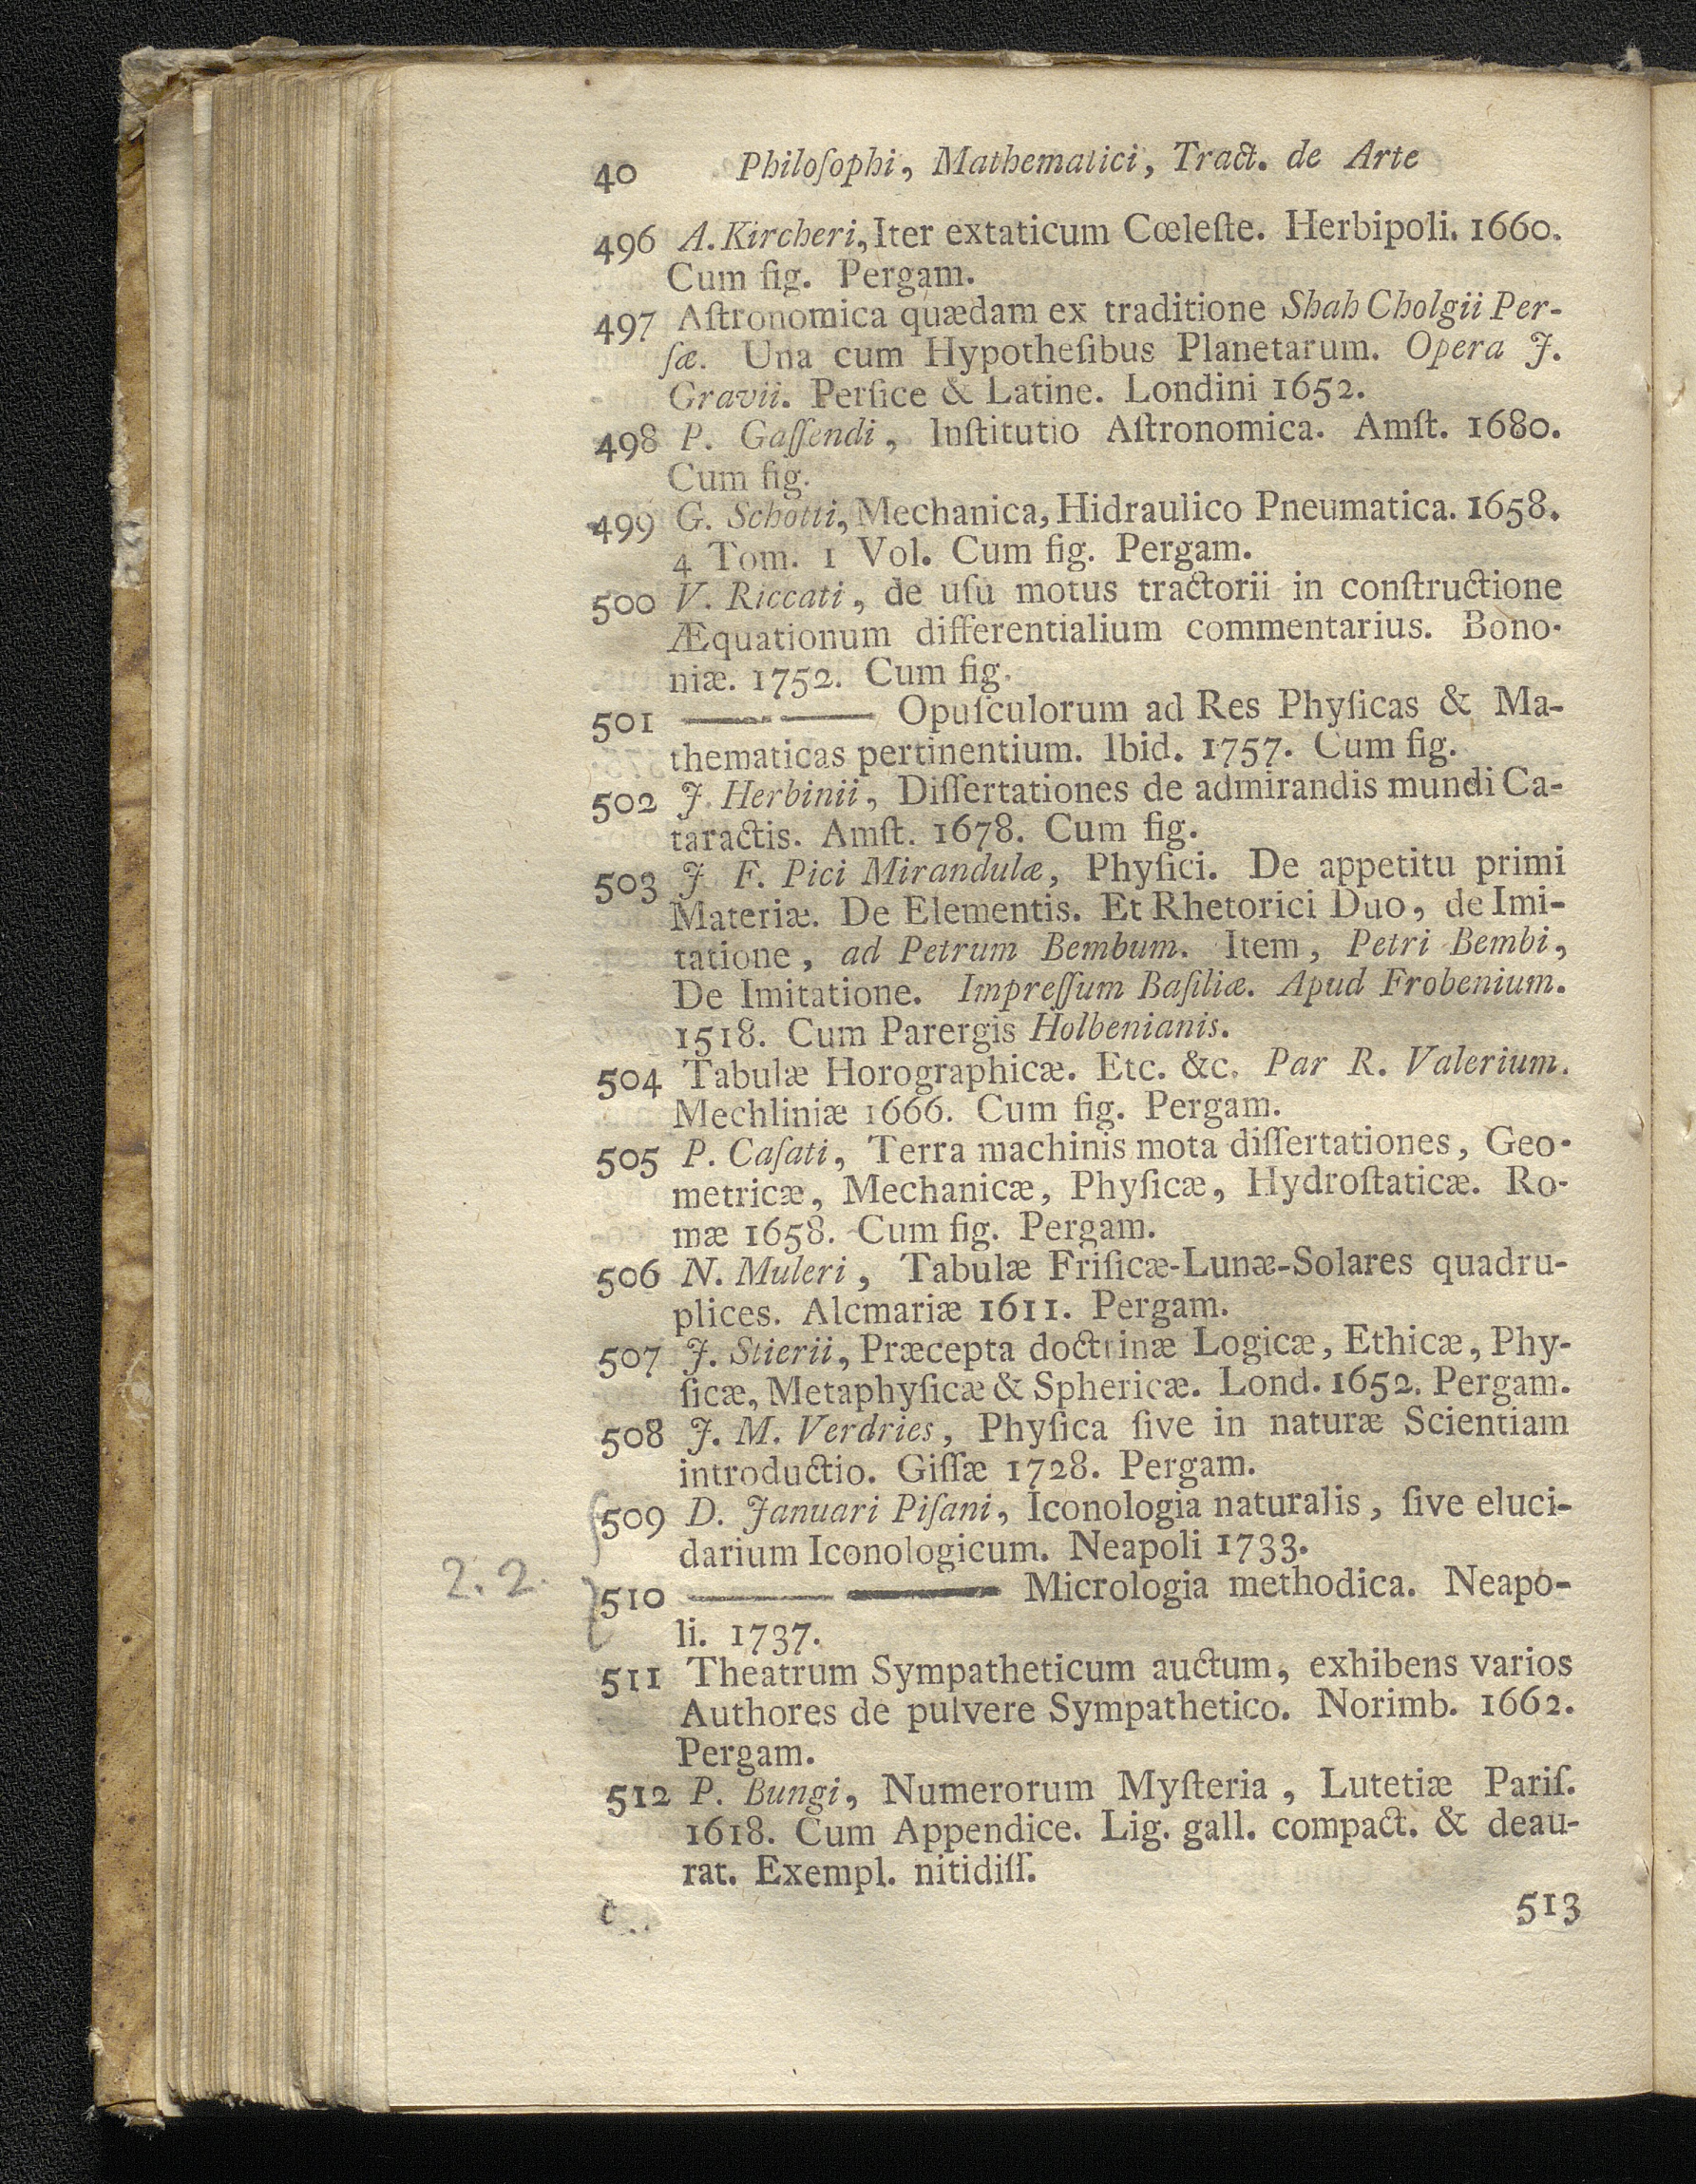 40 Philoſophi, Mathematici, Tract. de Arte
496 A. Kircheri, Iter extaticum Cœleſte. Herbipoli. 1660.
Cum fig. Pergam.
497 Aſtronomica quædam ex traditione Shah Cholgii Per-
ſæ. Una cum Hypotheſibus Planetarum. Opera J.
Gravii. Perſice & Latine. Londini 1652.
498 P. Gaſſendi, Inſtitutio Aſtronomica. Amſt. 1680.
Cum fig.
499 G. Schotti, Mechanica, Hidraulico Pneumatica. 1658.
4 Tom. 1 Vol. Cum fig. Pergam.
500 V. Riccati, de uſu motus tractorii in conſtructione
Æquationum differentialium commentarius. Bono-
niæ. 1752. Cum fig.
501 —— —— Opuſculorum ad Res Phyſicas & Ma-
thematicas pertinentium. Ibid. 1757. Cum fig.
502 J. Herbinii, Diſſertationes de admirandis mundi Ca-
taractis. Amſt. 1678. Cum fig.
503 J F. Pici Mirandulæ, Phyſici. De appetitu primi
Materiæ. De Elementis. Et Rhetorici Duo, de Imi-
tatione, ad Petrum Bembum. Item, Petri Bembi,
De Imitatione. Impreſſum Baſiliæ. Apud Frobenium.
1518. Cum Parergis Holbenianis.
504 Tabulæ Horographicæ. Etc. &c. Par R. Valerium.
Mechliniæ 1666. Cum fig. Pergam.
505 P. Caſati, Terra machinis mota diſſertationes, Geo-
metricæ, Mechanicæ, Phyſicæ, Hydroſtaticæ. Ro-
mæ 1658. Cum fig. Pergam.
506 N. Muleri, Tabulæ Friſicæ-Lunæ-Solares quadru-
plices. Alcmariæ 1611. Pergam.
507 J. Stierii, Præcepta doctrinæ Logicæ, Ethicæ, Phy-
ſicæ, Metaphyſicæ & Sphericæ. Lond. 1652. Pergam.
508 J. M. Verdries, Phyſica ſive in naturæ Scientiam
introductio. Giſſæ 1728. Pergam.
509 D. Januari Piſani, Iconologia naturalis, ſive eluci-
darium Iconologicum. Neapoli 1733.
2.2.
510 —— —— Micrologia methodica. Neapo-
li. 1737.
511 Theatrum Sympatheticum auctum, exhibens varios
Authores de pulvere Sympathetico. Norimb. 1662.
Pergam.
512 P. Bungi, Numerorum Myſteria, Lutetiæ Pariſ.
1618. Cum Appendice. Lig. gall. compact. & deau-
rat. Exempl. nitidiſſ.
513